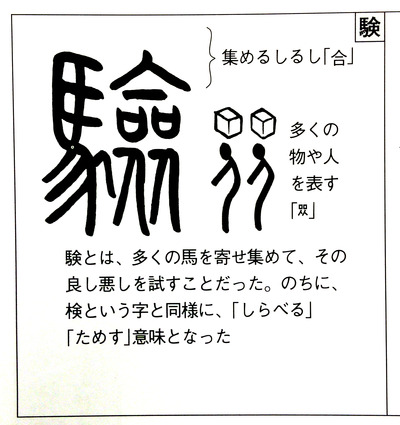 験
驗
集めるしるし「合」
多くの
物や人
を表す
「」
験とは、多くの馬を寄せ集めて、その
良し悪しを試すことだった。のちに、
検という字と同様に、「しらべる」
「ためす」意味となった